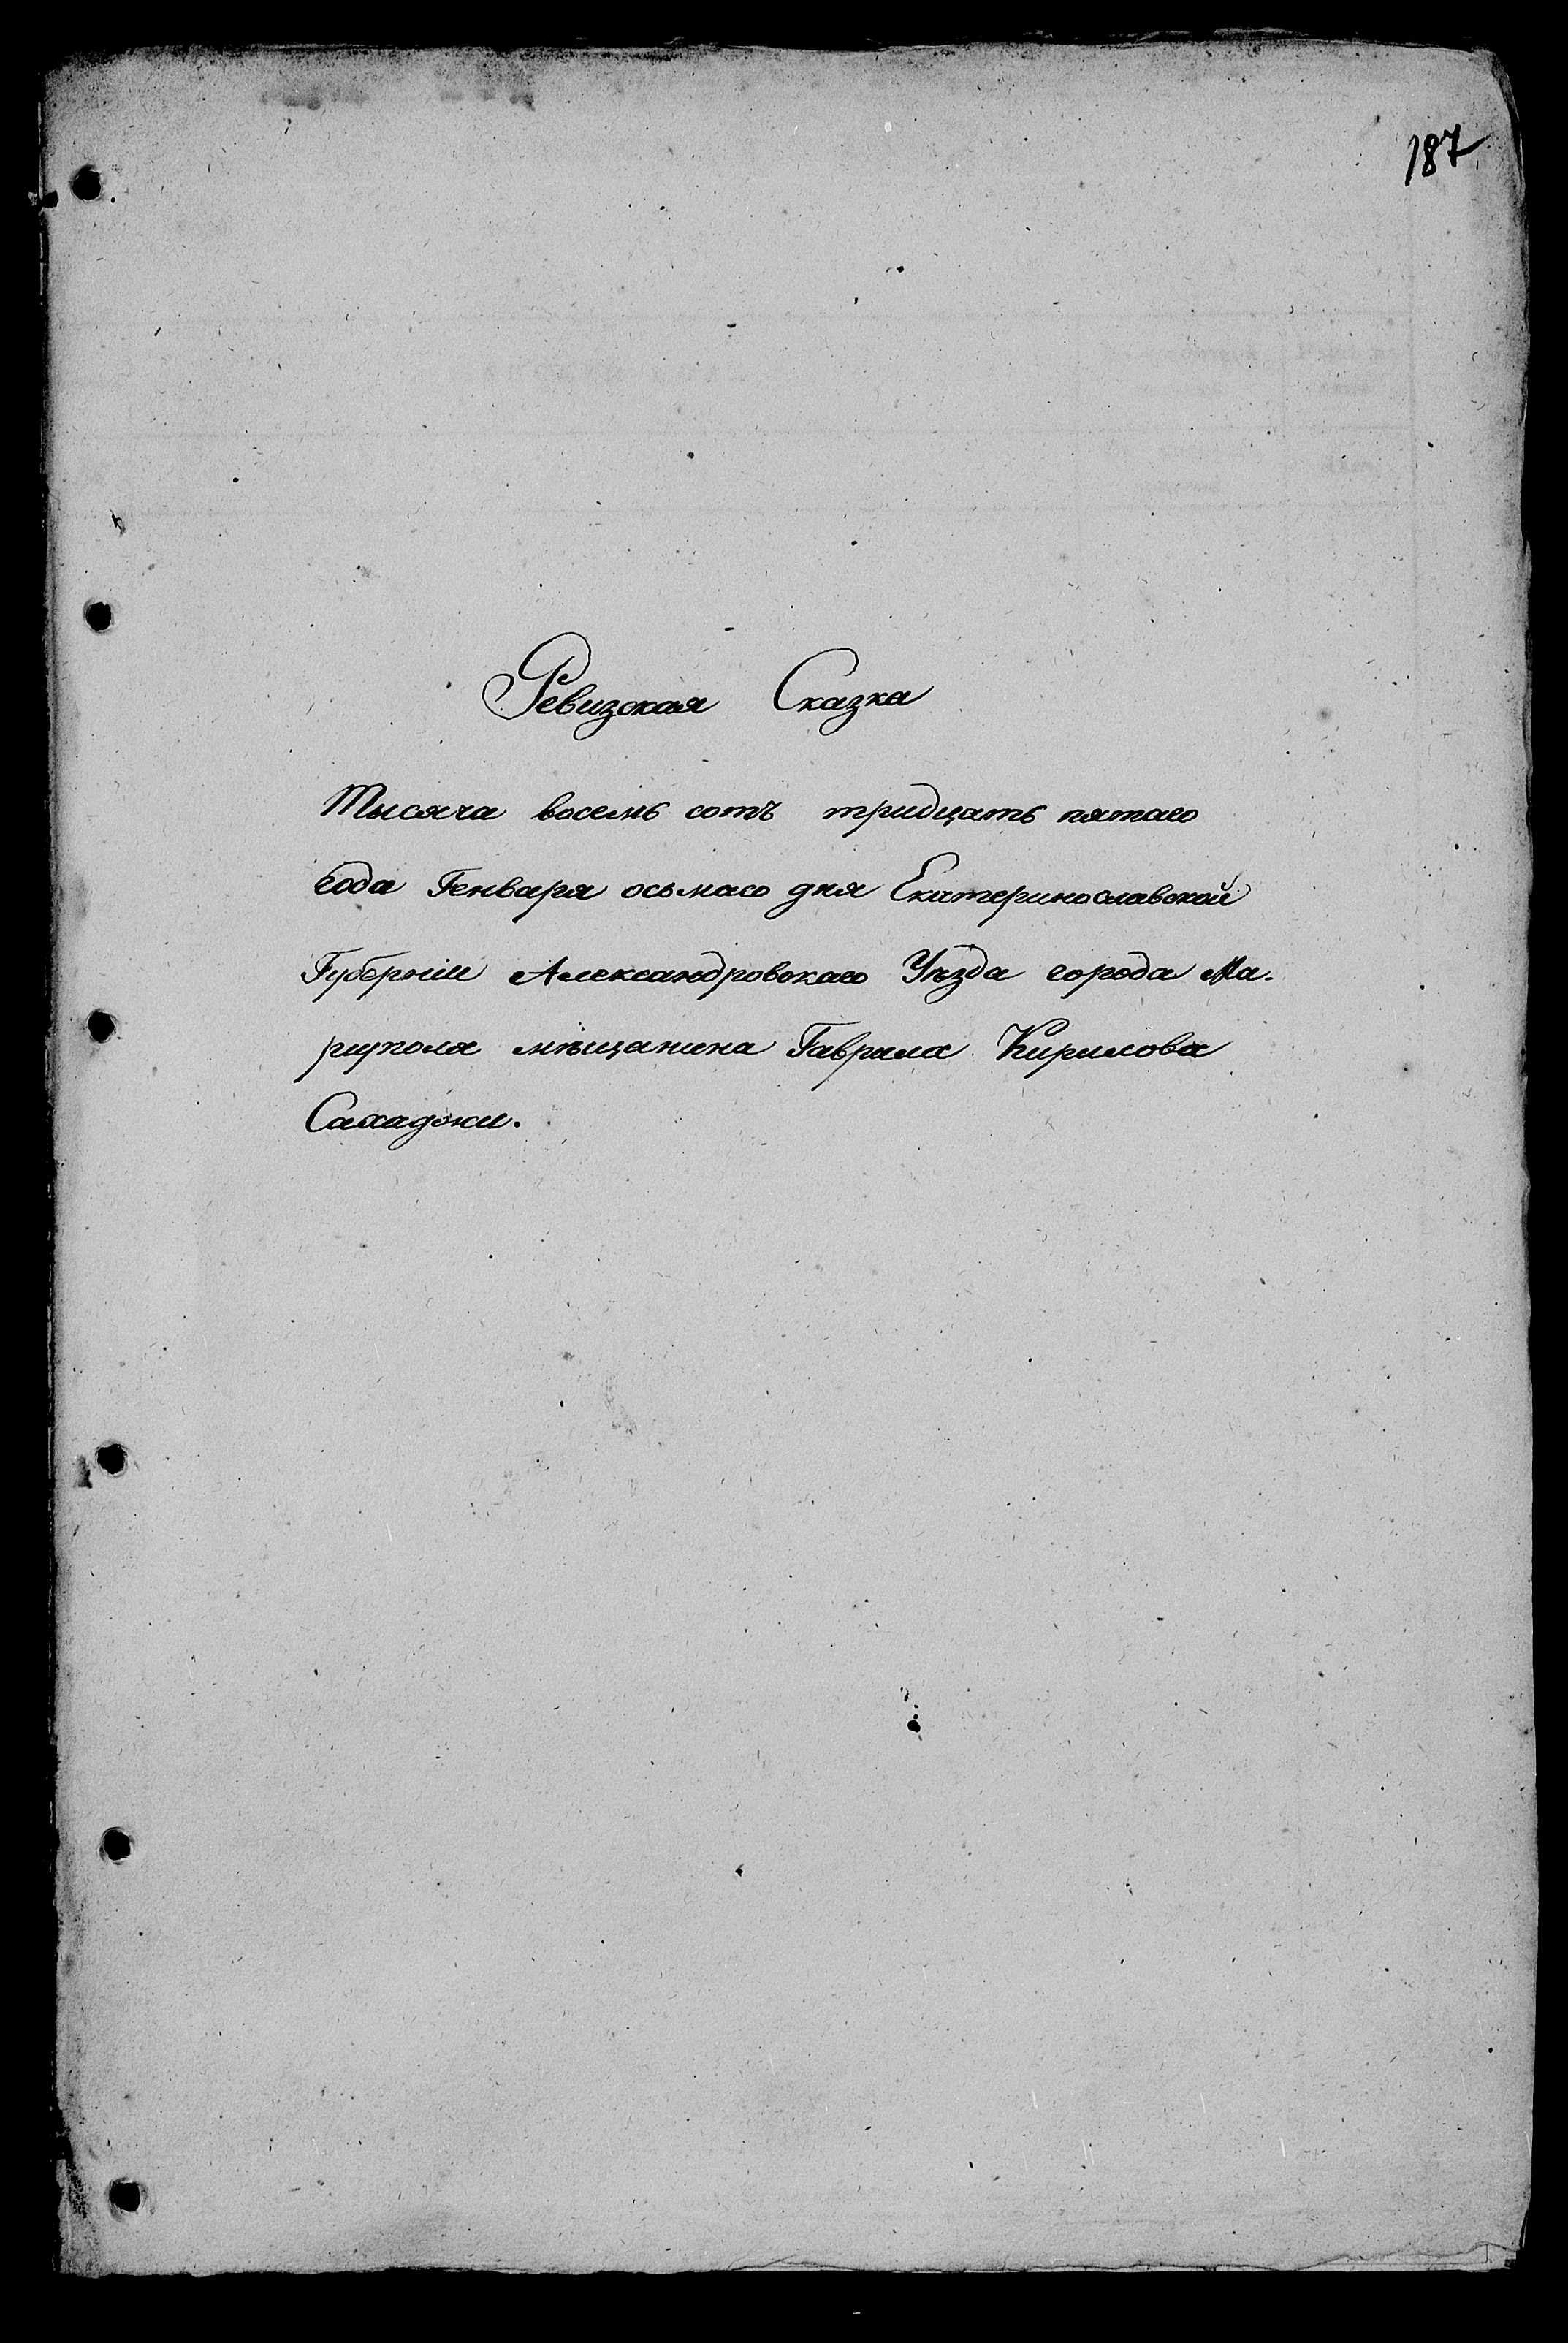 187
Ревизская Сказка
Тысяча восемь сотъ тридцать пятаго
года Генваря осьмаго дня Екатеринославской
Губернии Александровскаго Уѣзда города Ма-
риуполя мѣщанина Гаврила Кирилова